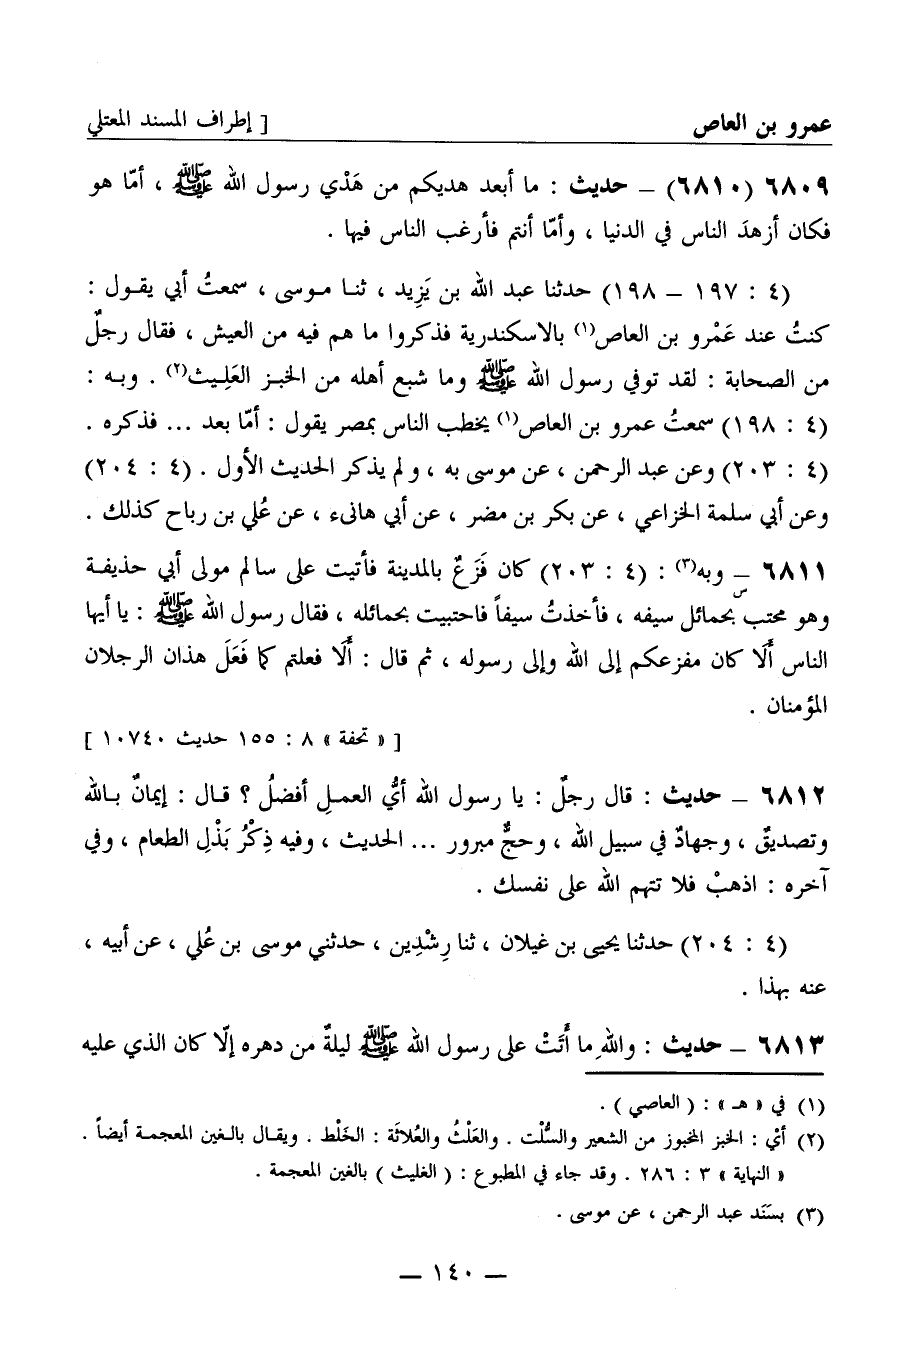 عمرو بن العاص [ إطراف المسند المعتلي
٦٨٠٩ (٦٨١٠) ــ حديث : ما أبعد هديكم من هَدْي رسول الله ﷺ ، أمّا هو
فكان أزهدَ الناس في الدنيا ، وأمّا أنتم فأرغب الناس فيها .
(٤ : ١٩٧ ــ ١٩٨) حدثنا عبد الله بن يَزِيد ، ثنا موسى ، سمعتُ أبي يقول :
كنتُ عند عَمْرو بن العاص(١) بالاسكندرية فذكروا ما هم فيه من العيش ، فقال رجلٌ
من الصحابة : لقد توفي رسول الله ﷺ وما شبع أهله من الخبز العَلِيث(٢) . وبه :
(٤ : ١٩٨) سمعتُ عمرو بن العاص(١) يخطب الناس بمصر يقول : أمّا بعد ... فذكره .
(٤ : ٢٠٣) وعن عبد الرحمن ، عن موسى به ، ولم يذكر الحديث الأول . (٤ : ٢٠٤)
وعن أبي سلمة الخزاعي ، عن بكر بن مضر ، عن أبي هانىء ، عن عُلي بن رباح كذلك .
٦٨١١ ــ وبه(٣) : (٤ : ٢٠٣) كان فَزَعٌ بالمدينة فأتيت على سالم مولى أبي حذيفة
وهو محتب بحمائل سيفه ، فأخذتُ سيفاً فاحتبيت بحمائله ، فقال رسول الله ﷺ : يا أيها
الناس أَلَا كان مفزعكم إلى الله وإلى رسوله ، ثم قال : أَلَا فعلتم كما فَعَلَ هذان الرجلان
المؤمنان .
[ « تحفة » ٨ : ١٥٥ حديث ١٠٧٤٠ ]
٦٨١٢ ــ حديث : قال رجلٌ : يا رسول الله أيُّ العمل أفضلُ ؟ قال : إيمانٌ بالله
وتصديقٌ ، وجهادٌ في سبيل الله ، وحجٌّ مبرور ... الحديث ، وفيه ذِكْرُ بَذْلِ الطعام ، وفي
آخره : اذهبْ فلا تتهم الله على نفسك .
(٤ : ٢٠٤) حدثنا يحيى بن غيلان ، ثنا رِشْدِين ، حدثني موسى بن عُلي ، عن أبيه ،
عنه بهذا .
٦٨١٣ ــ حديث : واللهِ ما أَتَتْ على رسول الله ﷺ ليلةٌ من دهره إلّا كان الذي عليه
(١) في « هـ » : ( العاصي ) .
(٢) أيْ : الخبز المخبوز من الشعير والسُّلْت . والعَلْثُ والعُلاثَة : الخَلْط . ويقال بالغين المعجمة أيضاً .
« النهاية » ٣ : ٢٨٦ . وقد جاء في المطبوع : ( الغليث ) بالغين المعجمة .
(٣) بسَنَد عبد الرحمن ، عن موسى .
ــ ١٤٠ ــ